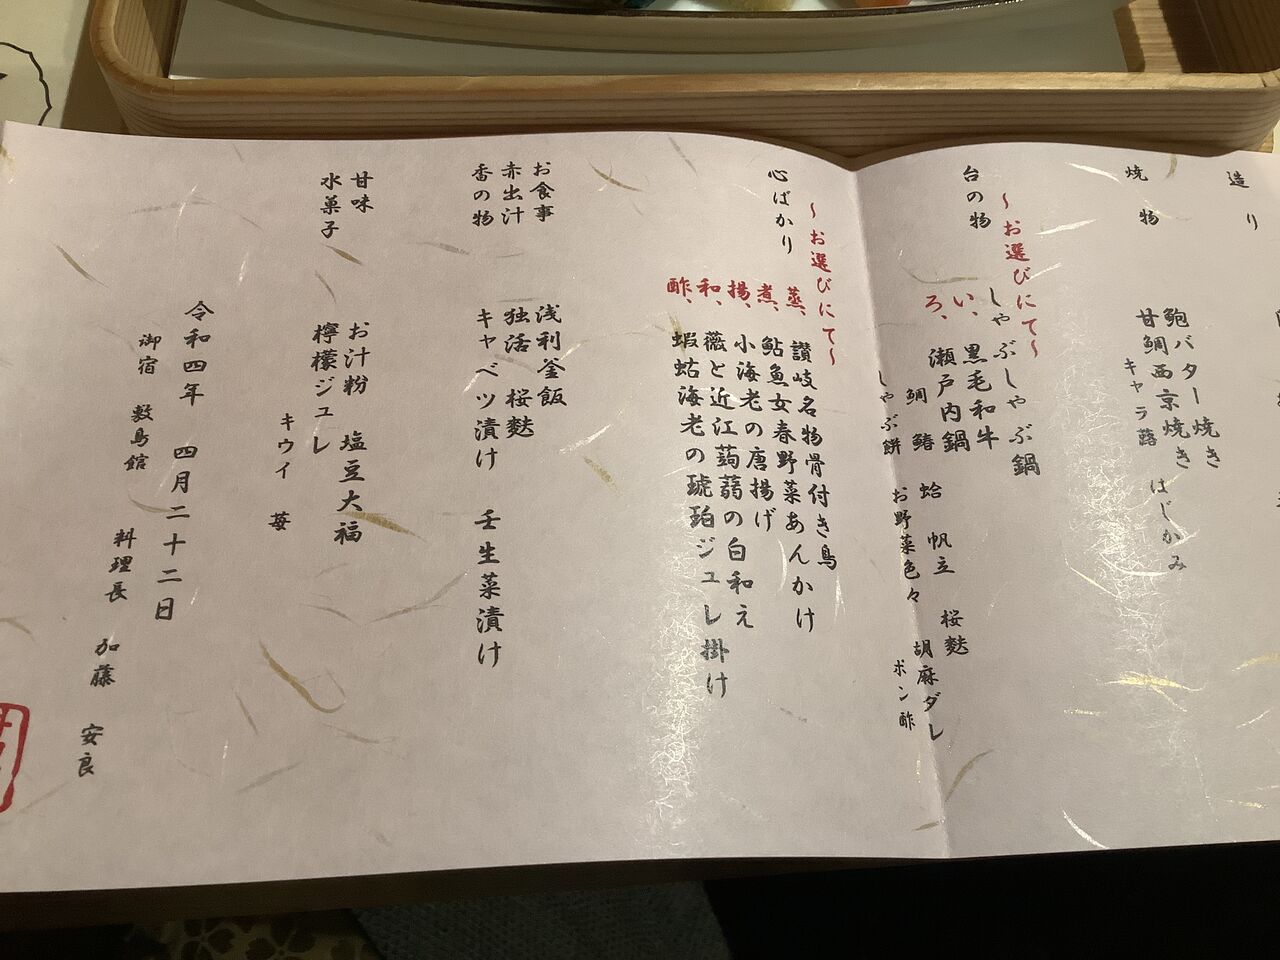 造り
焼物
鮑バター焼き
甘鯛西京焼き はじかみ
キャラ蕗
～お選びにて～
台の物
しゃぶしゃぶ鍋
い、 黒毛和牛
ろ、 瀬戸内鍋
鯛 鰆 蛤 帆立 桜麩
しゃぶ餅 お野菜色々 胡麻ダレ
ポン酢
～お選びにて～
心ばかり
蒸、 讃岐名物骨付き鳥
煮、 鮎魚女春野菜あんかけ
揚、 小海老の唐揚げ
和、 薇と近江蒟蒻の白和え
酢、 蝦蛄海老の琥珀ジュレ掛け
お食事 浅利釜飯
赤出汁 独活 桜麩
香の物 キャベツ漬け 壬生菜漬け
甘味 お汁粉 塩豆大福
水菓子 檸檬ジュレ
キウイ 苺
令和四年 四月二十二日
御宿 敷島館 料理長 加藤 安良